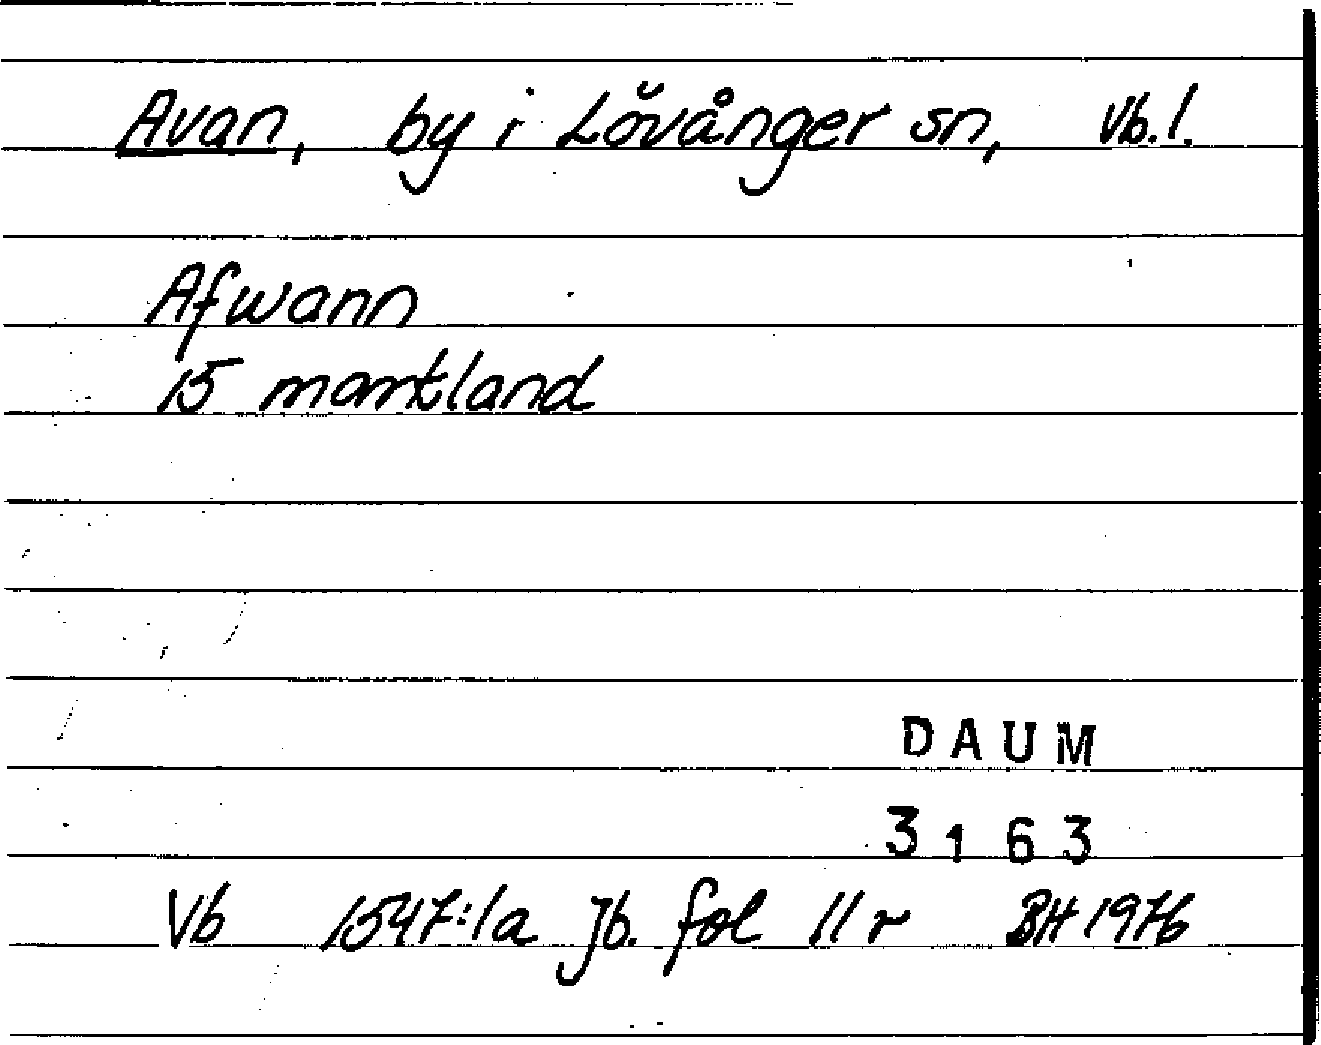 Avan, by i Lövånger sn, Vb.l.
Afwann
15 markland
DAUM
3163
Vb 1547:1a Jb. fol 11 r BH 1976